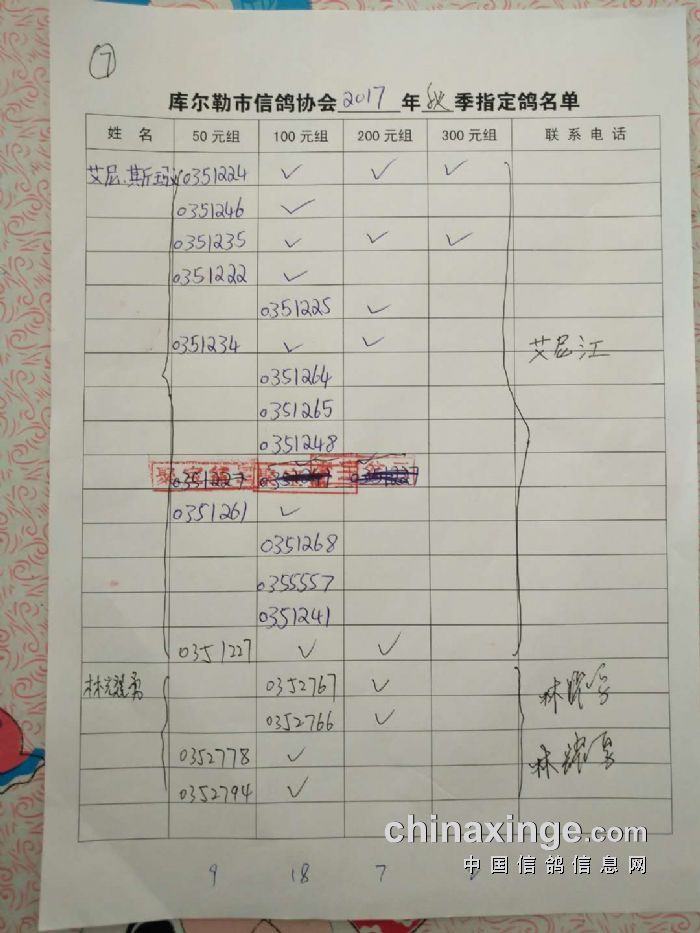 7
库尔勒市信鸽协会 2017 年 秋 季指定鸽名单
姓 名 50元组 100元组 200元组 300元组 联系电话
艾尼.斯玛义 0351224 ✓ ✓ ✓
0351246 ✓
0351235 ✓ ✓ ✓
0351222 ✓
0351225 ✓
0351234 ✓ ✓ 艾尼江
0351264
0351265
0351248
0351227 0351227
0351261 ✓
0351268
0355557
0351241
0351227 ✓ ✓
林 勇 0352767 ✓
0352766 ✓
0352778 ✓
0352794 ✓
9 18 7
chinaxinge.com
中国信鸽信息网